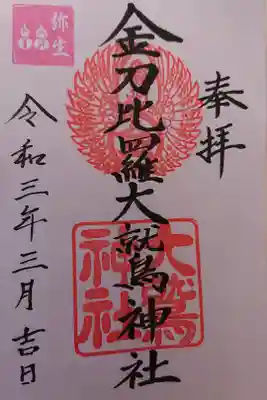 奉拝
金刀比羅大鷲神社
大鷲
神社
弥生
令和三年三月吉日